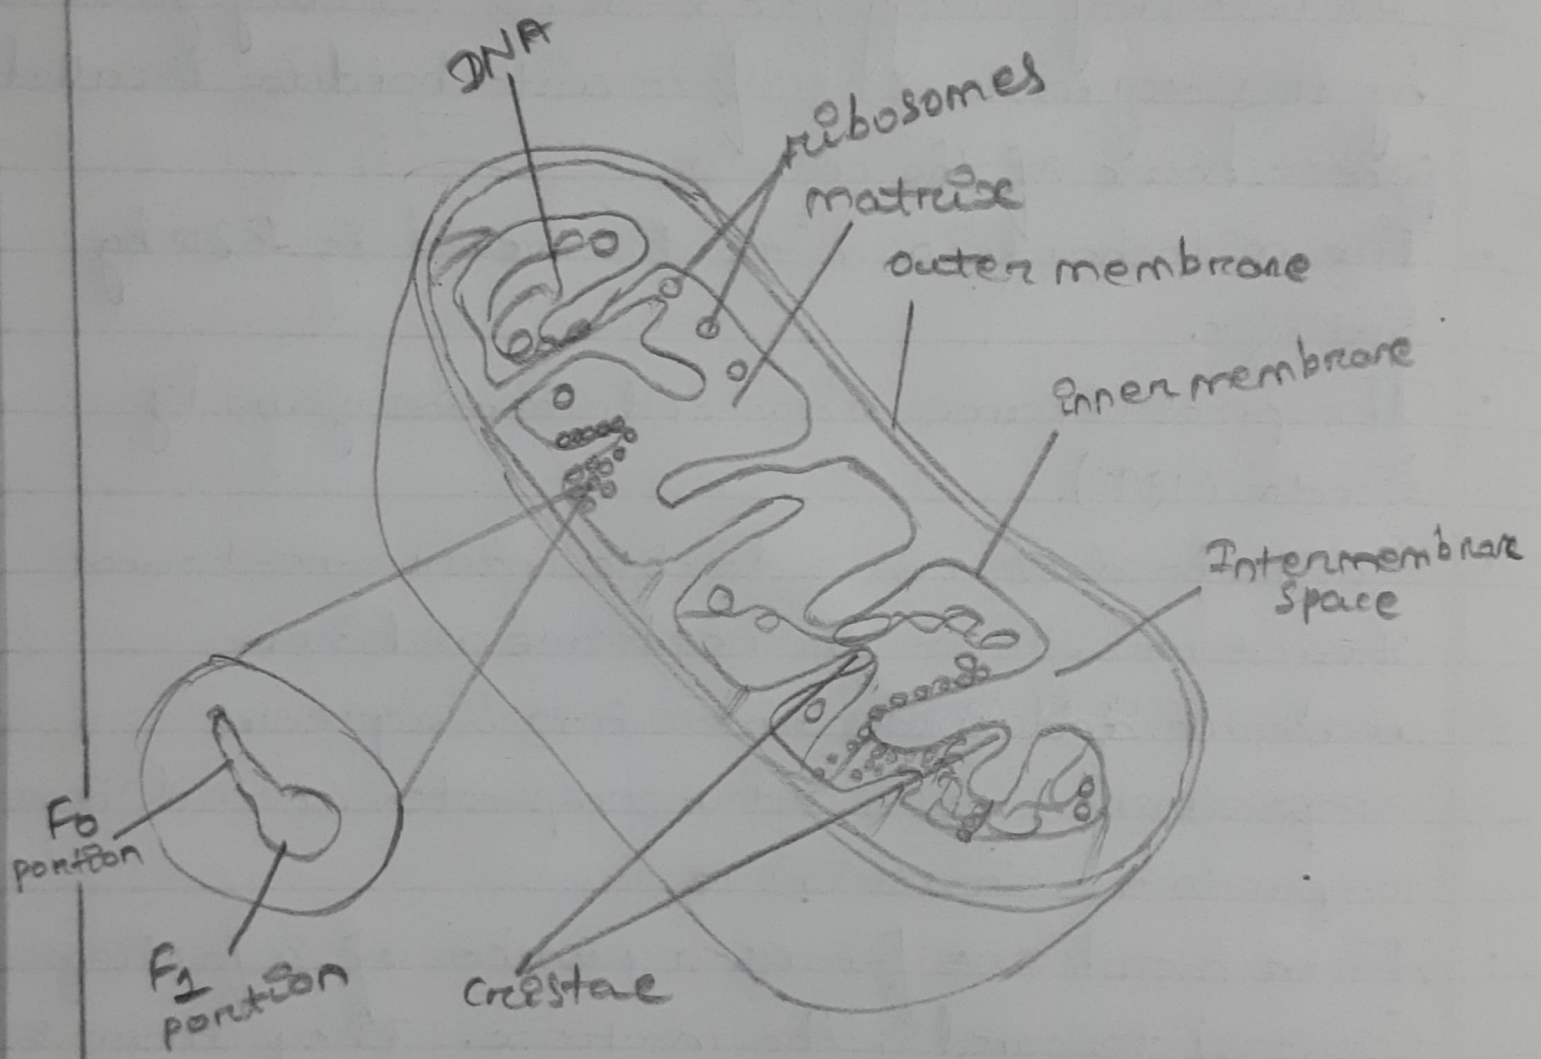 DNA
ribosomes
matrix
outer membrane
inner membrane
Intermembrane
space
Fo
portion
F1
portion
cristae